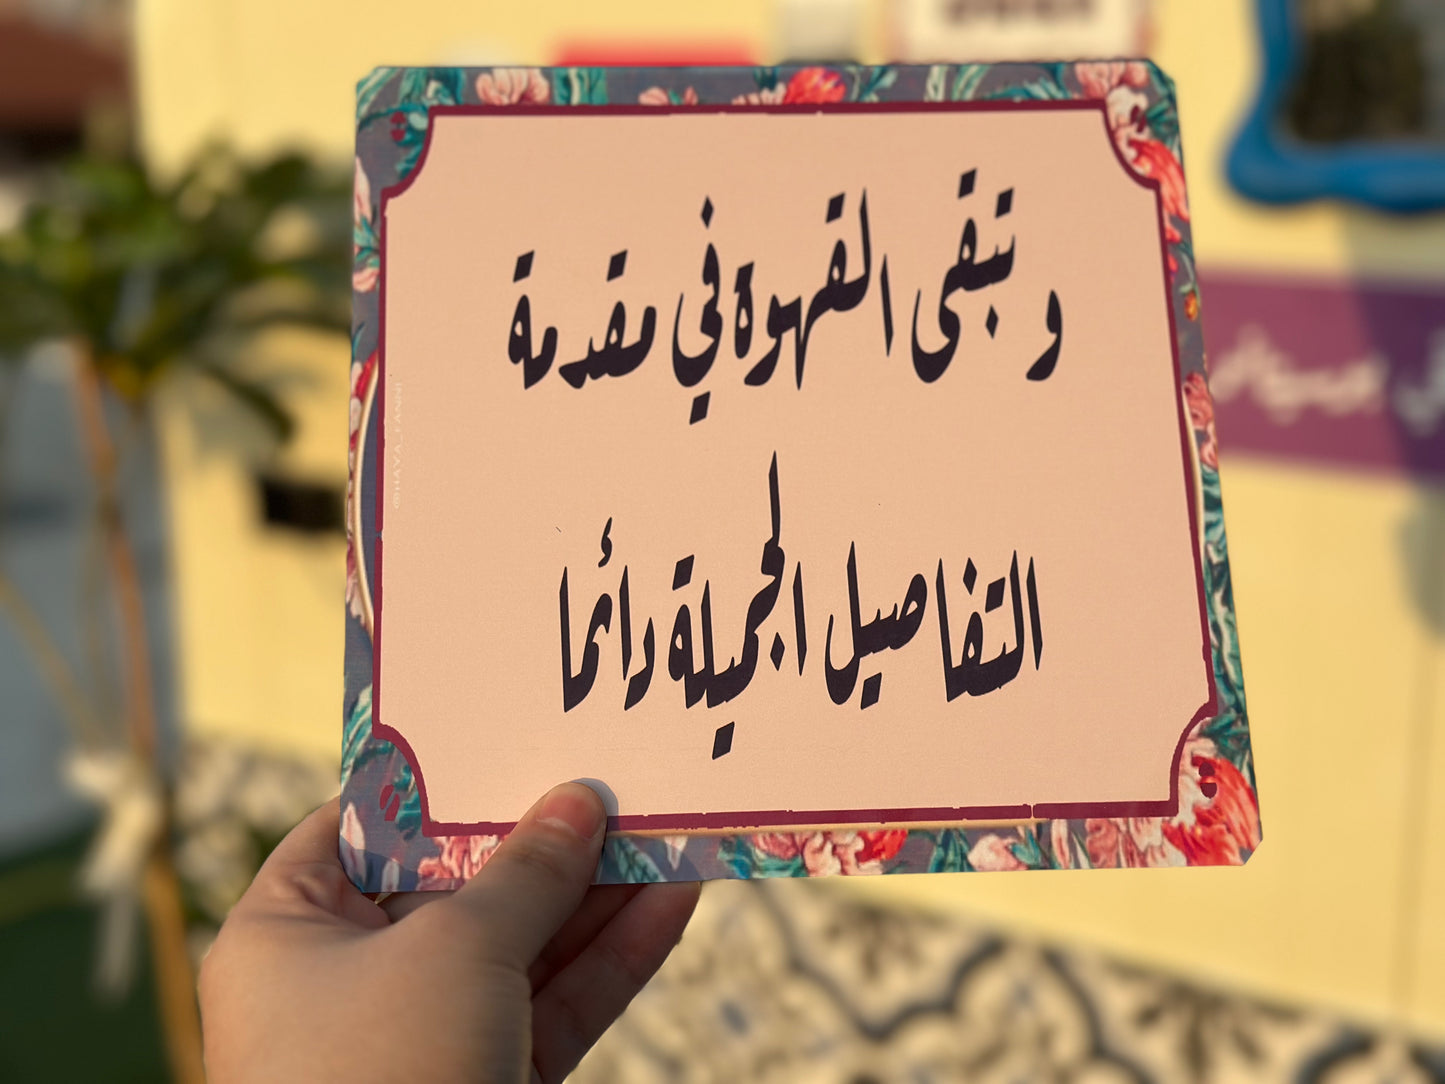 و تبقى القهوة في مقدمة
التفاصيل الجميلة دائمًا
@HAYA_FANNI